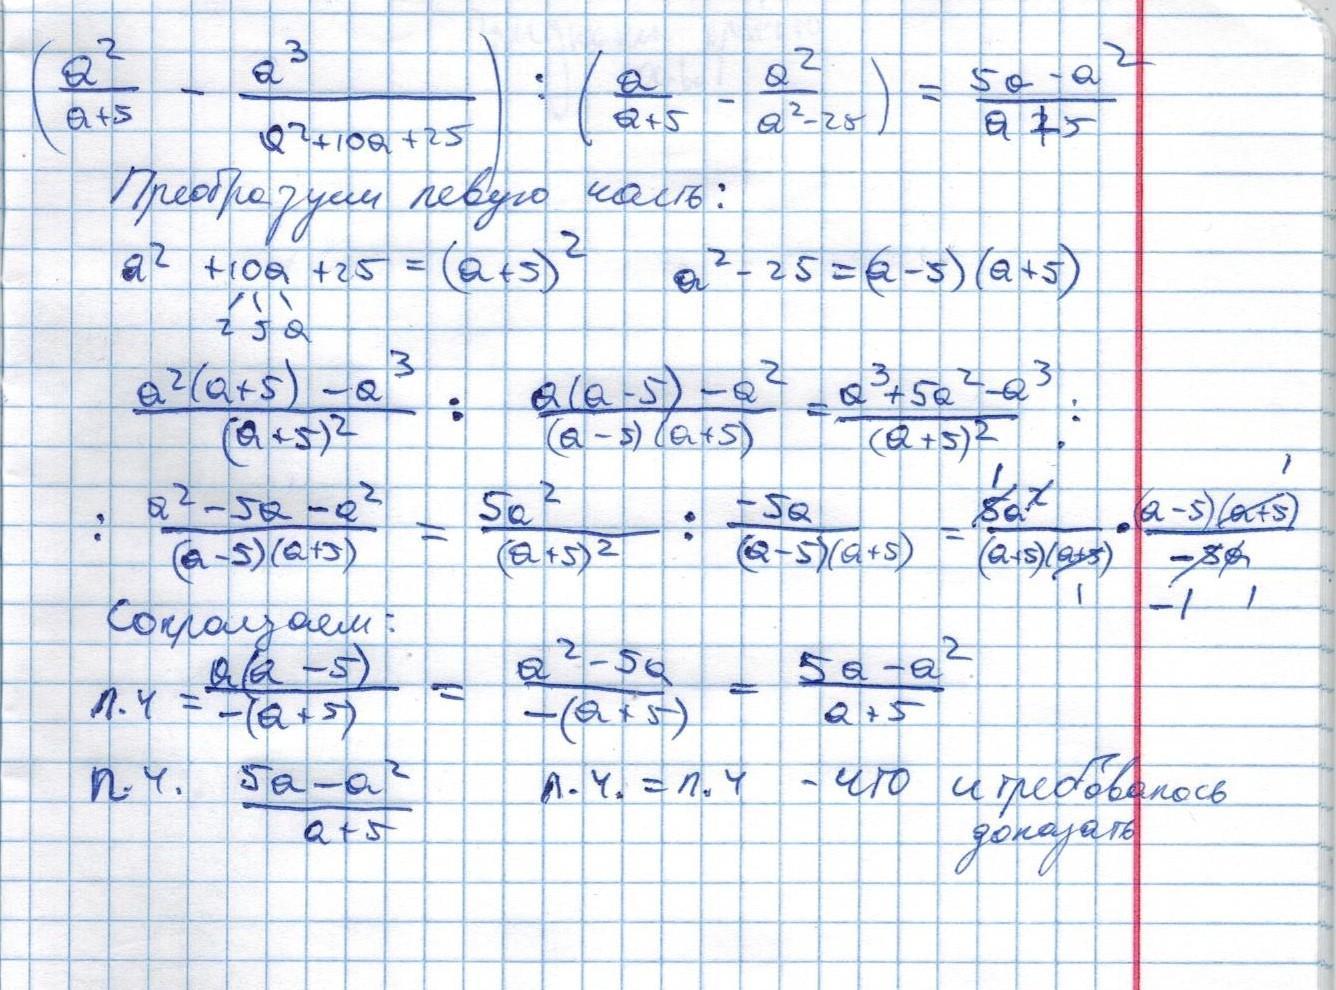 (a²/(a+5) - a³/(a²+10a+25)) : (a/(a+5) - a²/(a²-25)) = (5a-a²)/(a+5)
Преобразуем левую часть:
a² +10a +25 = (a+5)² a² - 25 = (a-5)(a+5)
2 5 a
(a²(a+5) - a³)/(a+5)² : (a(a-5) - a²)/((a-5)(a+5)) = (a³+5a²-a³)/(a+5)² :
: (a²-5a-a²)/((a-5)(a+5)) = 5a²/(a+5)² : -5a/((a-5)(a+5)) = 5a²/((a+5)(a+5)) · (a-5)(a+5)/(-5a)
Сокращаем:
л.ч = a(a-5)/(-(a+5)) = (a²-5a)/(-(a+5)) = (5a-a²)/(a+5)
п.ч. (5a-a²)/(a+5) л.ч. = п.ч - что и требовалось
доказать